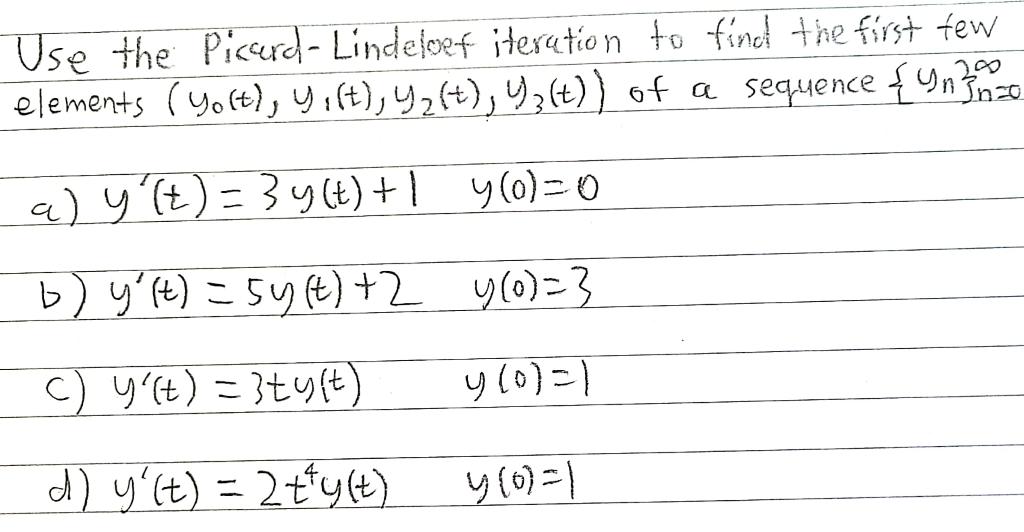 Use the Picard-Lindeloef iteration to find the first few
elements (y₀(t), y₁(t), y₂(t), y₃(t)) of a sequence {yₙ}ₙ₌₀^∞
a) y'(t) = 3y(t) + 1 y(0) = 0
b) y'(t) = 5y(t) + 2 y(0) = 3
c) y'(t) = 3ty(t) y(0) = 1
d) y'(t) = 2t⁴y(t) y(0) = 1